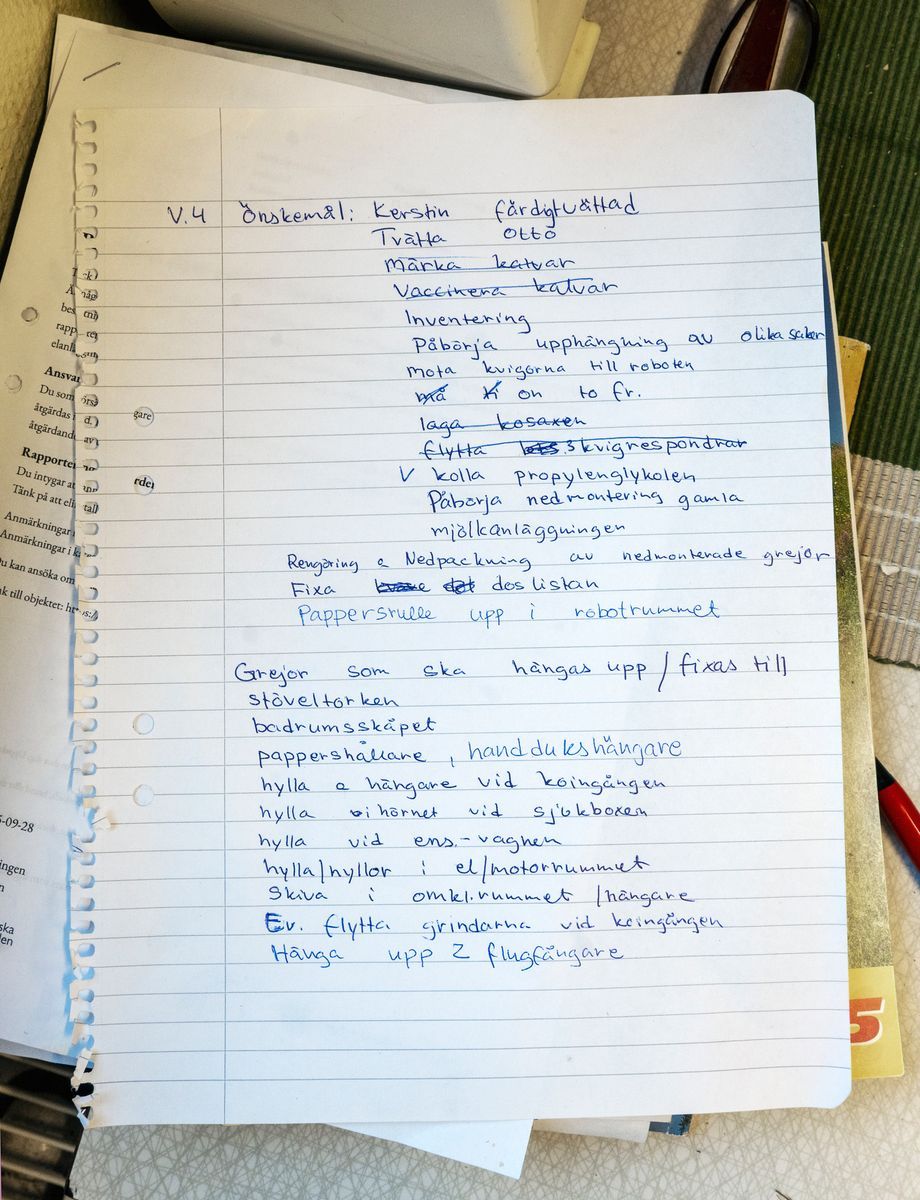 V.4 Önskemål: Kerstin färdigtvättad
Tvätta Otto
Märka kalvar
Vaccinera kalvar
Inventering
Påbörja upphängning av olika saker
mota kvigorna till roboten
må ti on to fr.
laga kosaxen
flytta 3 kvigrespondrar
V kolla propylenglykolen
Påbörja nedmontering gamla
mjölkanläggningen
Rengöring & Nedpackning av nedmonterade grejor
Fixa det deslistan
Pappersrulle upp i robotrummet
Grejor som ska hängas upp / fixas till
stöveltorken
badrumsskåpet
pappershållare, handdukshängare
hylla & hängare vid koingången
hylla i hörnet vid sjukboxen
hylla vid ens.-vagnen
hylla/hyllor i el/motorrummet
Skiva i omkl.rummet /hängare
Ev. flytta grindarna vid koingången
Hänga upp 2 flugfångare
Ansva
Du som
åtgärdas
åtgärdand
Rapporte
Du intygar at
Tänk på att eli
Anmärkningar i
Anmärkningar i k
u kan ansöka om
k till objektet: ht
gare
rde
5-09-28
ingen
ska
den
5